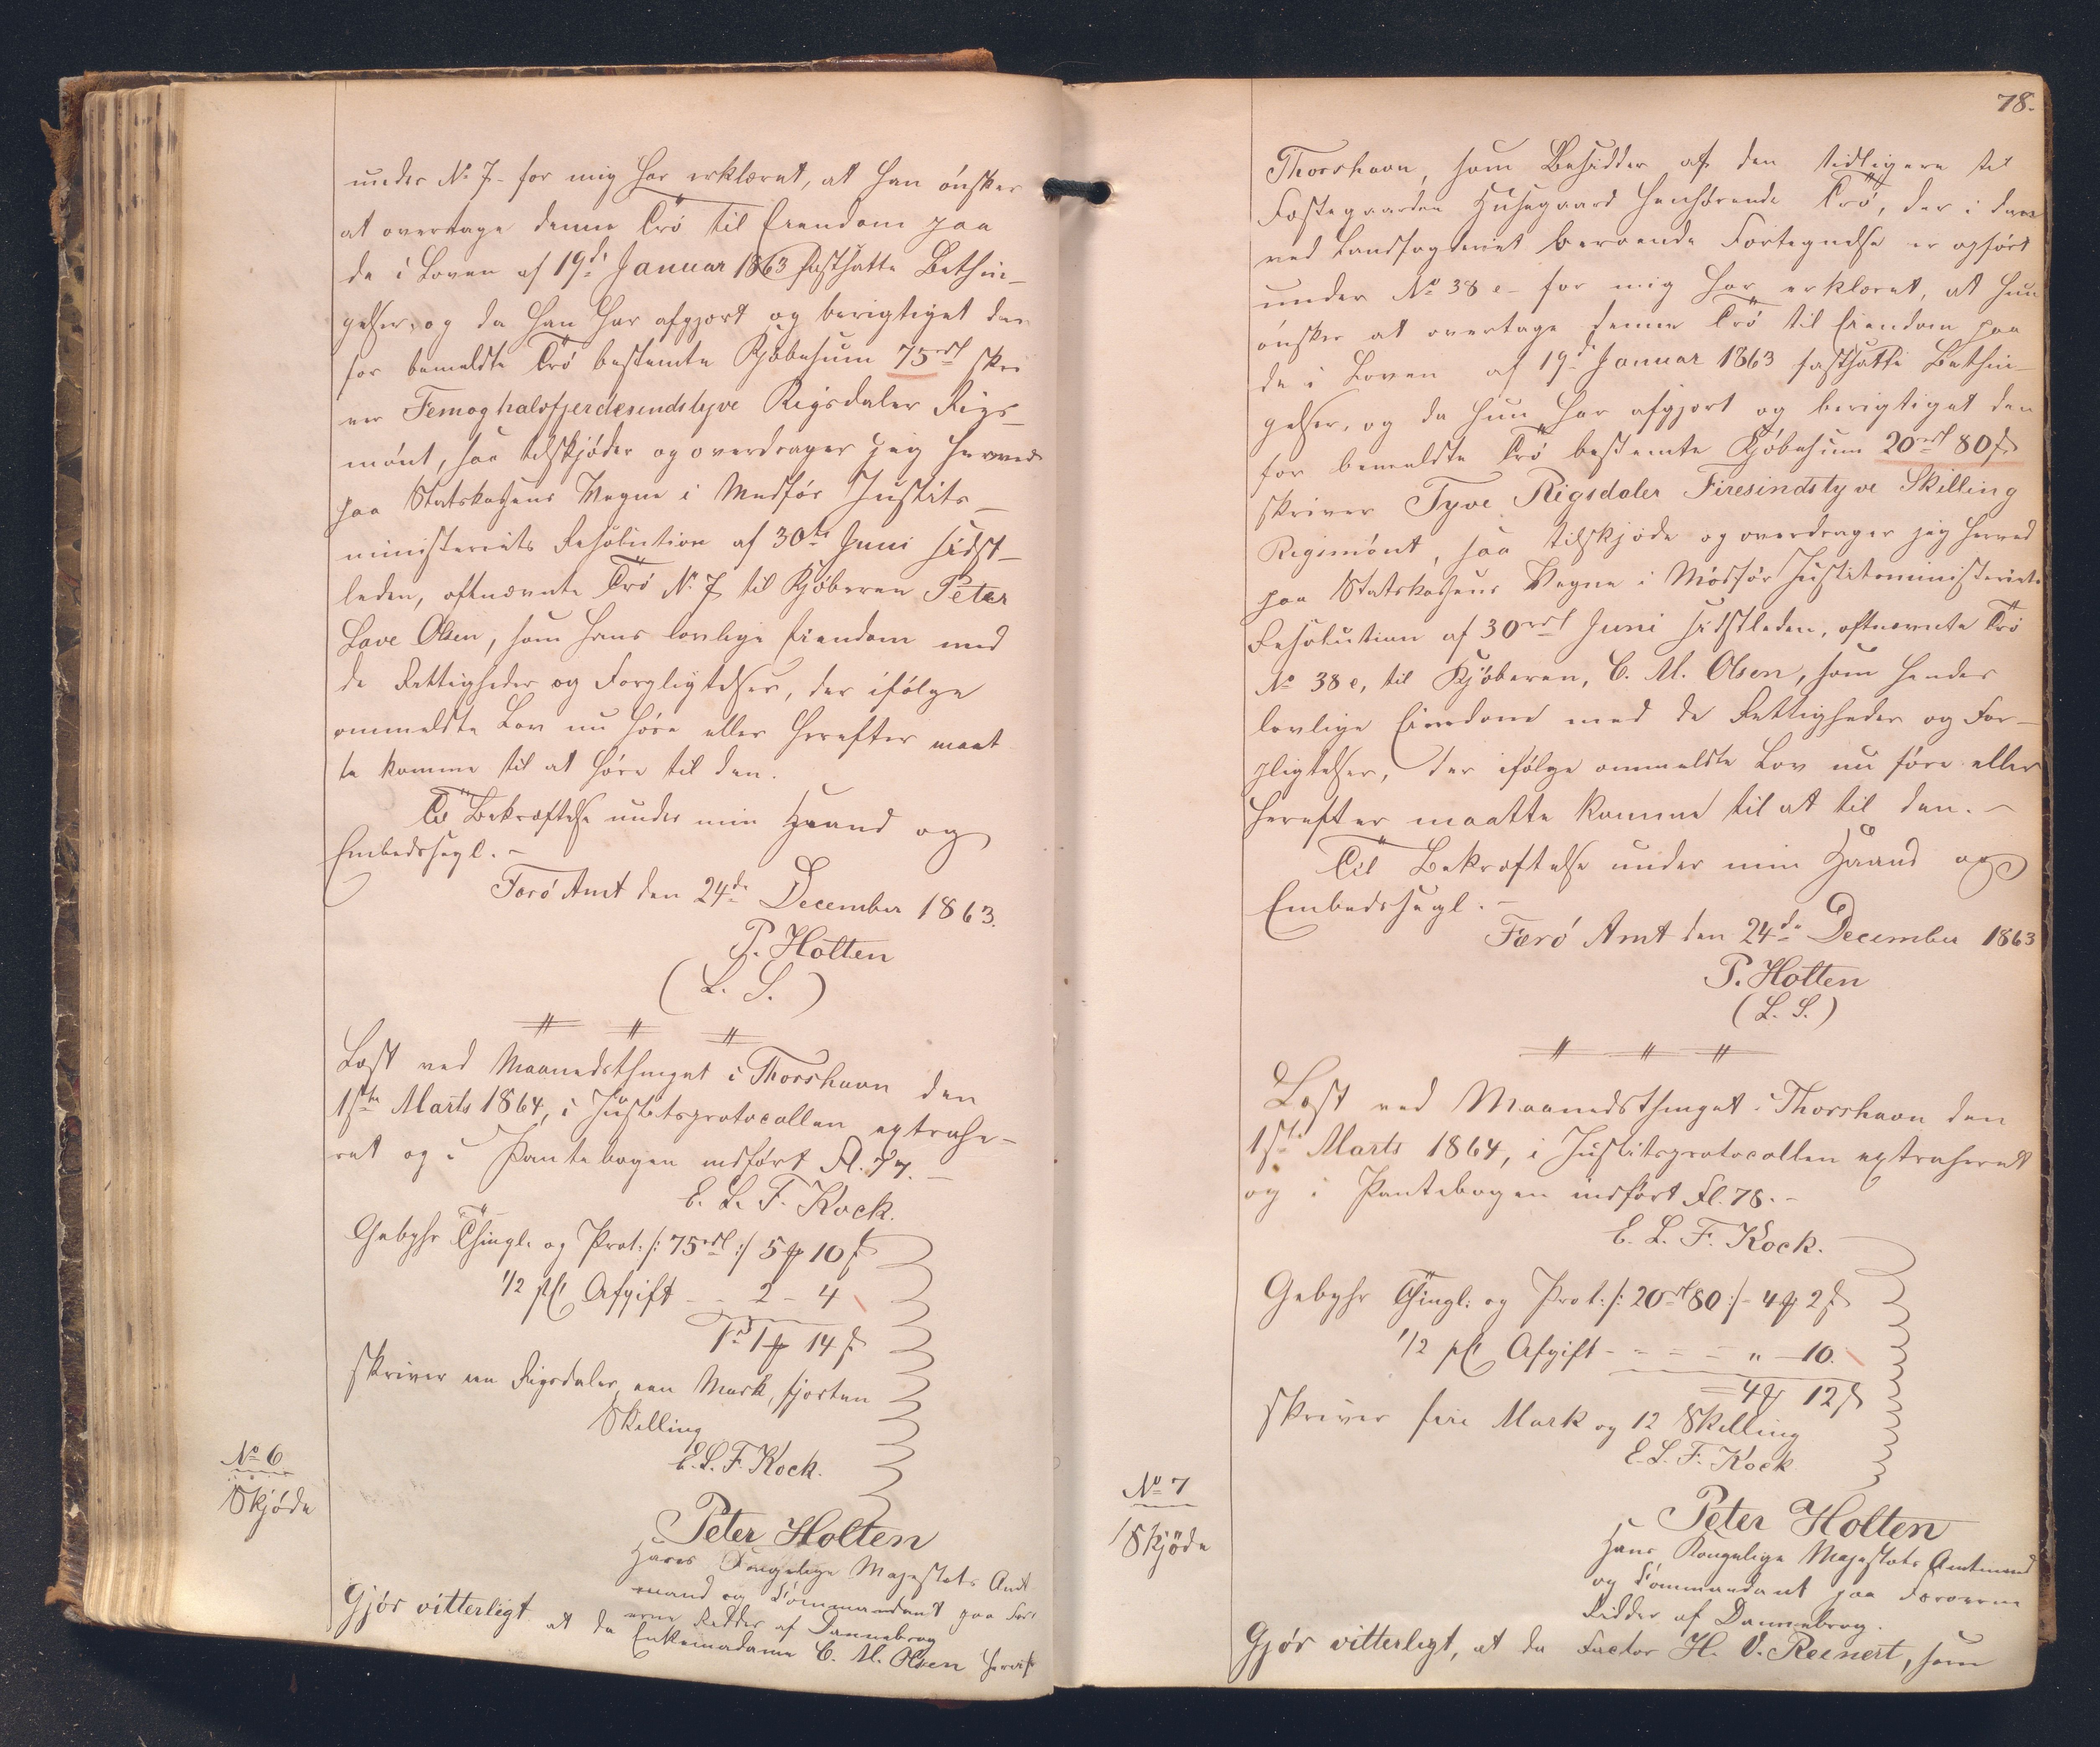 under No 7 for mig har erklæret, at han ønsker
at overtage denne Trö til Eiendom paa
de i Loven af 19de Januar 1863 fastsatte Bethin-
gelser, og da han har afgjort og berigtiget den
for bemeldte Trö bestemte Kjøbesum 75rdl skri
ver Femoghalvfjerdesindstyve Rigsdaler Rigs-
mønt, saa tilskjøder og overdrager jeg herved
paa Statskassens Vegne i Medfør Justits-
ministeriets Resolution af 30te Juni sidst-
leden, oftnævnte Trö No 7 til Kjøberen Peter
Lave Olsen, som hans lovlige Eiendom med
de Rettigheder og Forpligtelser, der ifølge
ommeldte Lov nu høre eller herefter maat
te komme til at høre til den.
Til Bekræftelse under min Haand og
Embedssegl.-
Færø Amt den 24de December 1863.
P. Holten
(L. S.)
Læst ved Maanedsthinget i Thorshavn den
1ste Marts 1864, i Justitsprotocollen extrahe-
ret og i Pantebogen indført Fl. 77.-
E. L. F. Kock.
Gebyhr Thingl. og Prot. /: 75rdl :/ 5 ℳ 10 ß
1/2 pCt Afgift - - 2 - 4
1rd 1 ℳ 14 ß
skriver een Rigsdaler, een Mark, fjorten
Skilling
E. L. F. Kock.
No 6
Skjøde
Peter Holten
Hans Kongelige Majestæts Amt
mand og Commandant paa Fær
øerne Ridder af Dannebrog
Gjør vitterligt at da Enkemadame C. M. Olsen
78.
Thorshavn, som Besidder af den tidligere til
Fæstegaarden Husegaard henhørende Trö, der i den
ved Landfogderiet beroende Fortegnelse er opført
under No 38 e - for mig har erklæret, at hun
ønsker at overtage denne Trö til Eiendom paa
de i Loven af 19de Januar 1863 fastsatte Bethin-
gelser, og da hun har afgjort og berigtiget den
for bemeldte Trö bestemte Kjøbesum 20rdl 80 ß
skriver Tyve Rigsdaler Firesindstyve Skilling
Rigsmønt, saa tilskjøde og overdrager jeg herved
paa Statskassens Vegne i Medfør Justitsministeriets
Resolution af 30rdl Juni sidstleden, oftnævnte Trö
No 38 e, til Kjøberen, C. M. Olsen, som hendes
lovlige Eiendom med de Rettigheder og For-
pligtelser, der ifølge ommeldte Lov nu høre eller
herefter maatte komme til at til den.-
Til Bekræftelse under min Haand og
Embedssegl.-
Færø Amt den 24de December 1863
P. Holten
(L. S.)
Læst ved Maanedsthinget i Thorshavn den
1ste Marts 1864, i Justitsprotocollen extraheret
og i Pantebogen indført Fl. 78.-
E. L. F. Kock.
Gebyhr Thingl: og Prot: /: 20rdl 80 :/ - 4 ℳ 2 ß
1/2 pCt Afgift - - - - " - 10.
4 ℳ 12 ß
skriver fire Mark og 12 Skilling
E. L. F. Kock
No 7
Skjøde
Peter Holten
Hans Kongelige Majestæts Amtmand
og Commandant paa Færøerne
Ridder af Dannebrog.
Gjør vitterligt, at da Factor H. V. Reinert, som